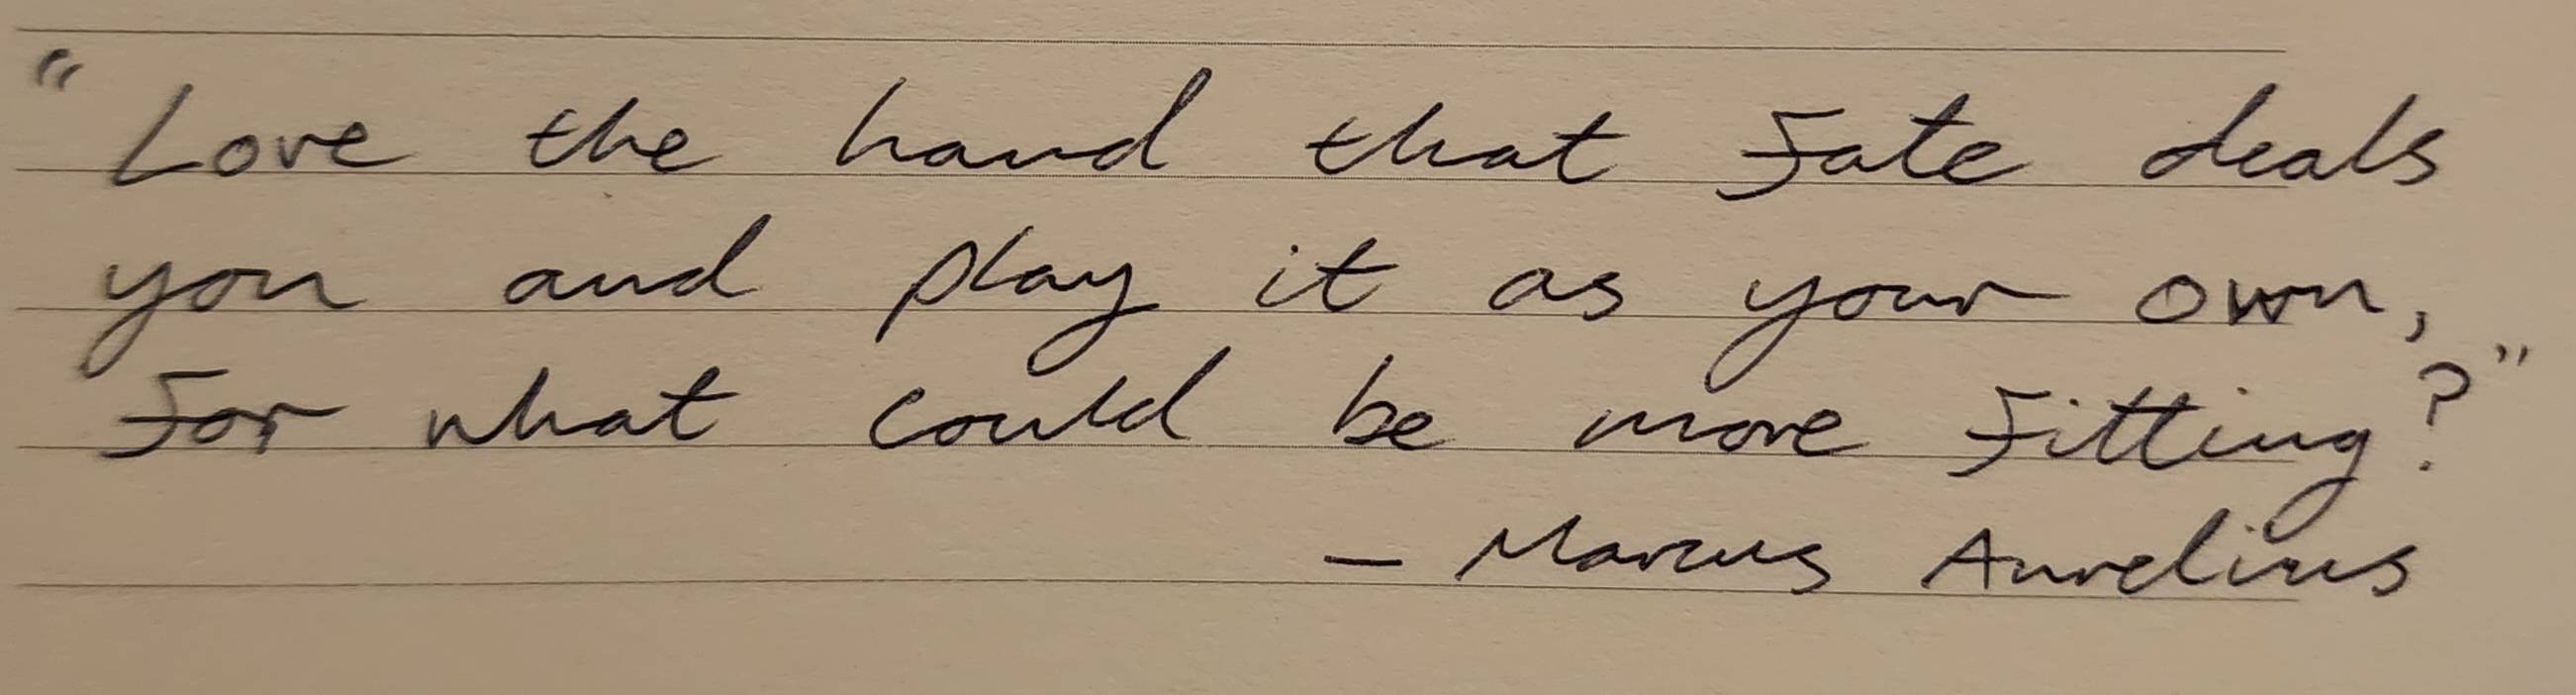 "Love the hand that fate deals
you and play it as your own,
for what could be more fitting?"
— Marcus Aurelius